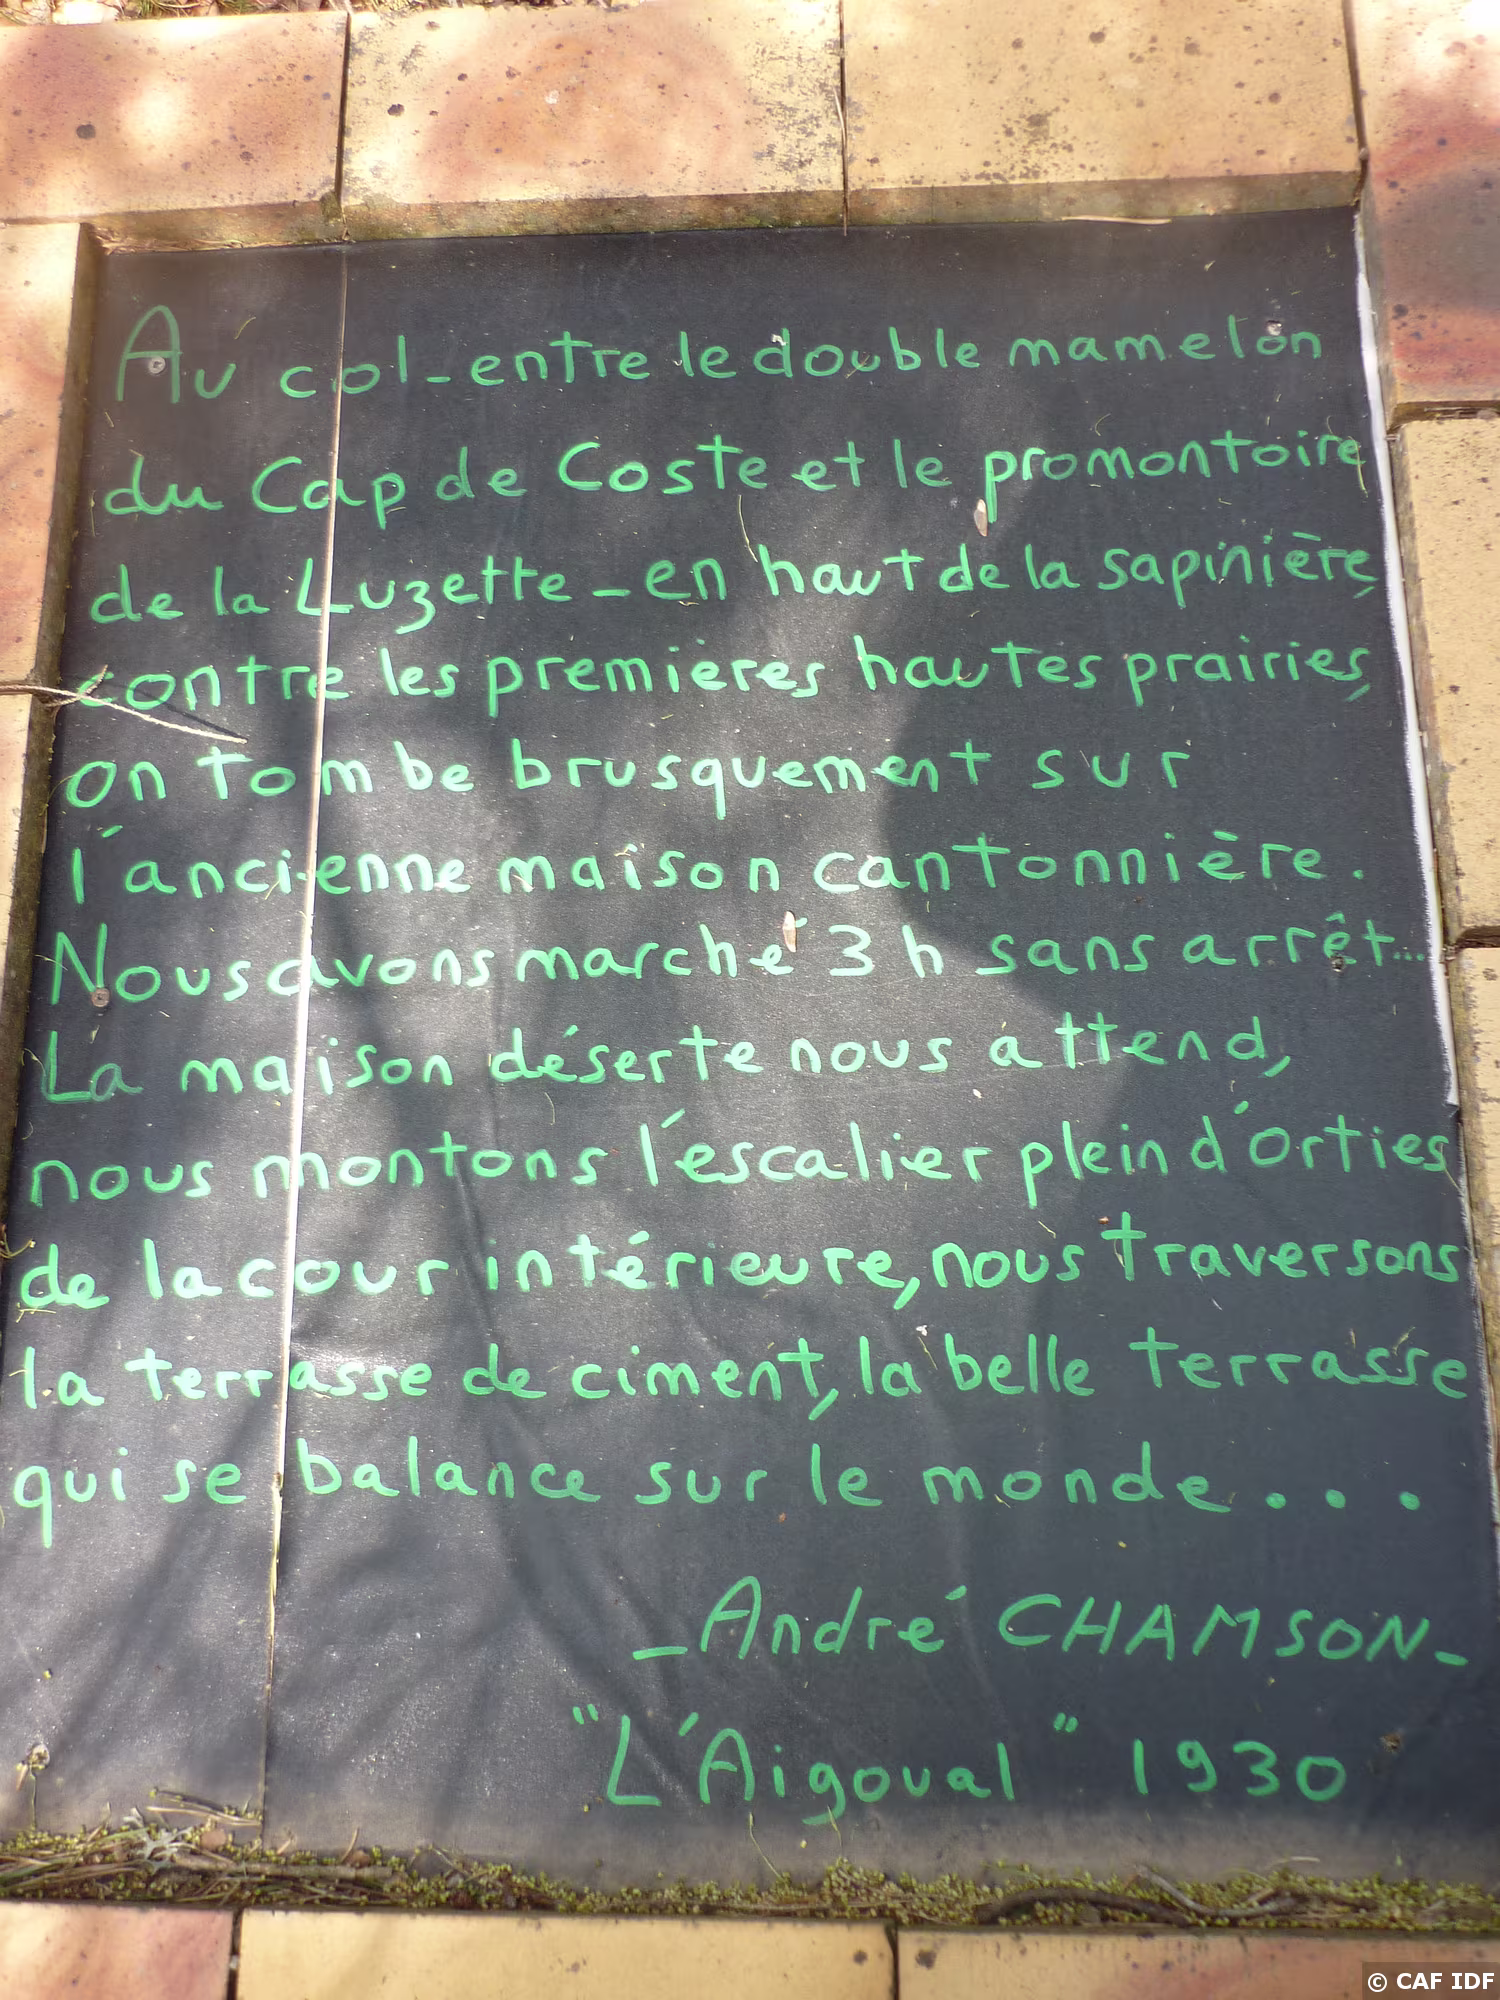 Au col - entre le double mamelon
du Cap de Coste et le promontoire
de la Luzette - en haut de la sapinière,
contre les premières hautes prairies,
on tombe brusquement sur
l'ancienne maison cantonnière.
Nous avons marché 3 h sans arrêt...
La maison déserte nous attend,
nous montons l'escalier plein d'orties
de la cour intérieure, nous traversons
la terrasse de ciment, la belle terrasse
qui se balance sur le monde...
- André CHAMSON -
"L'Aigoual" 1930
© CAF IDF